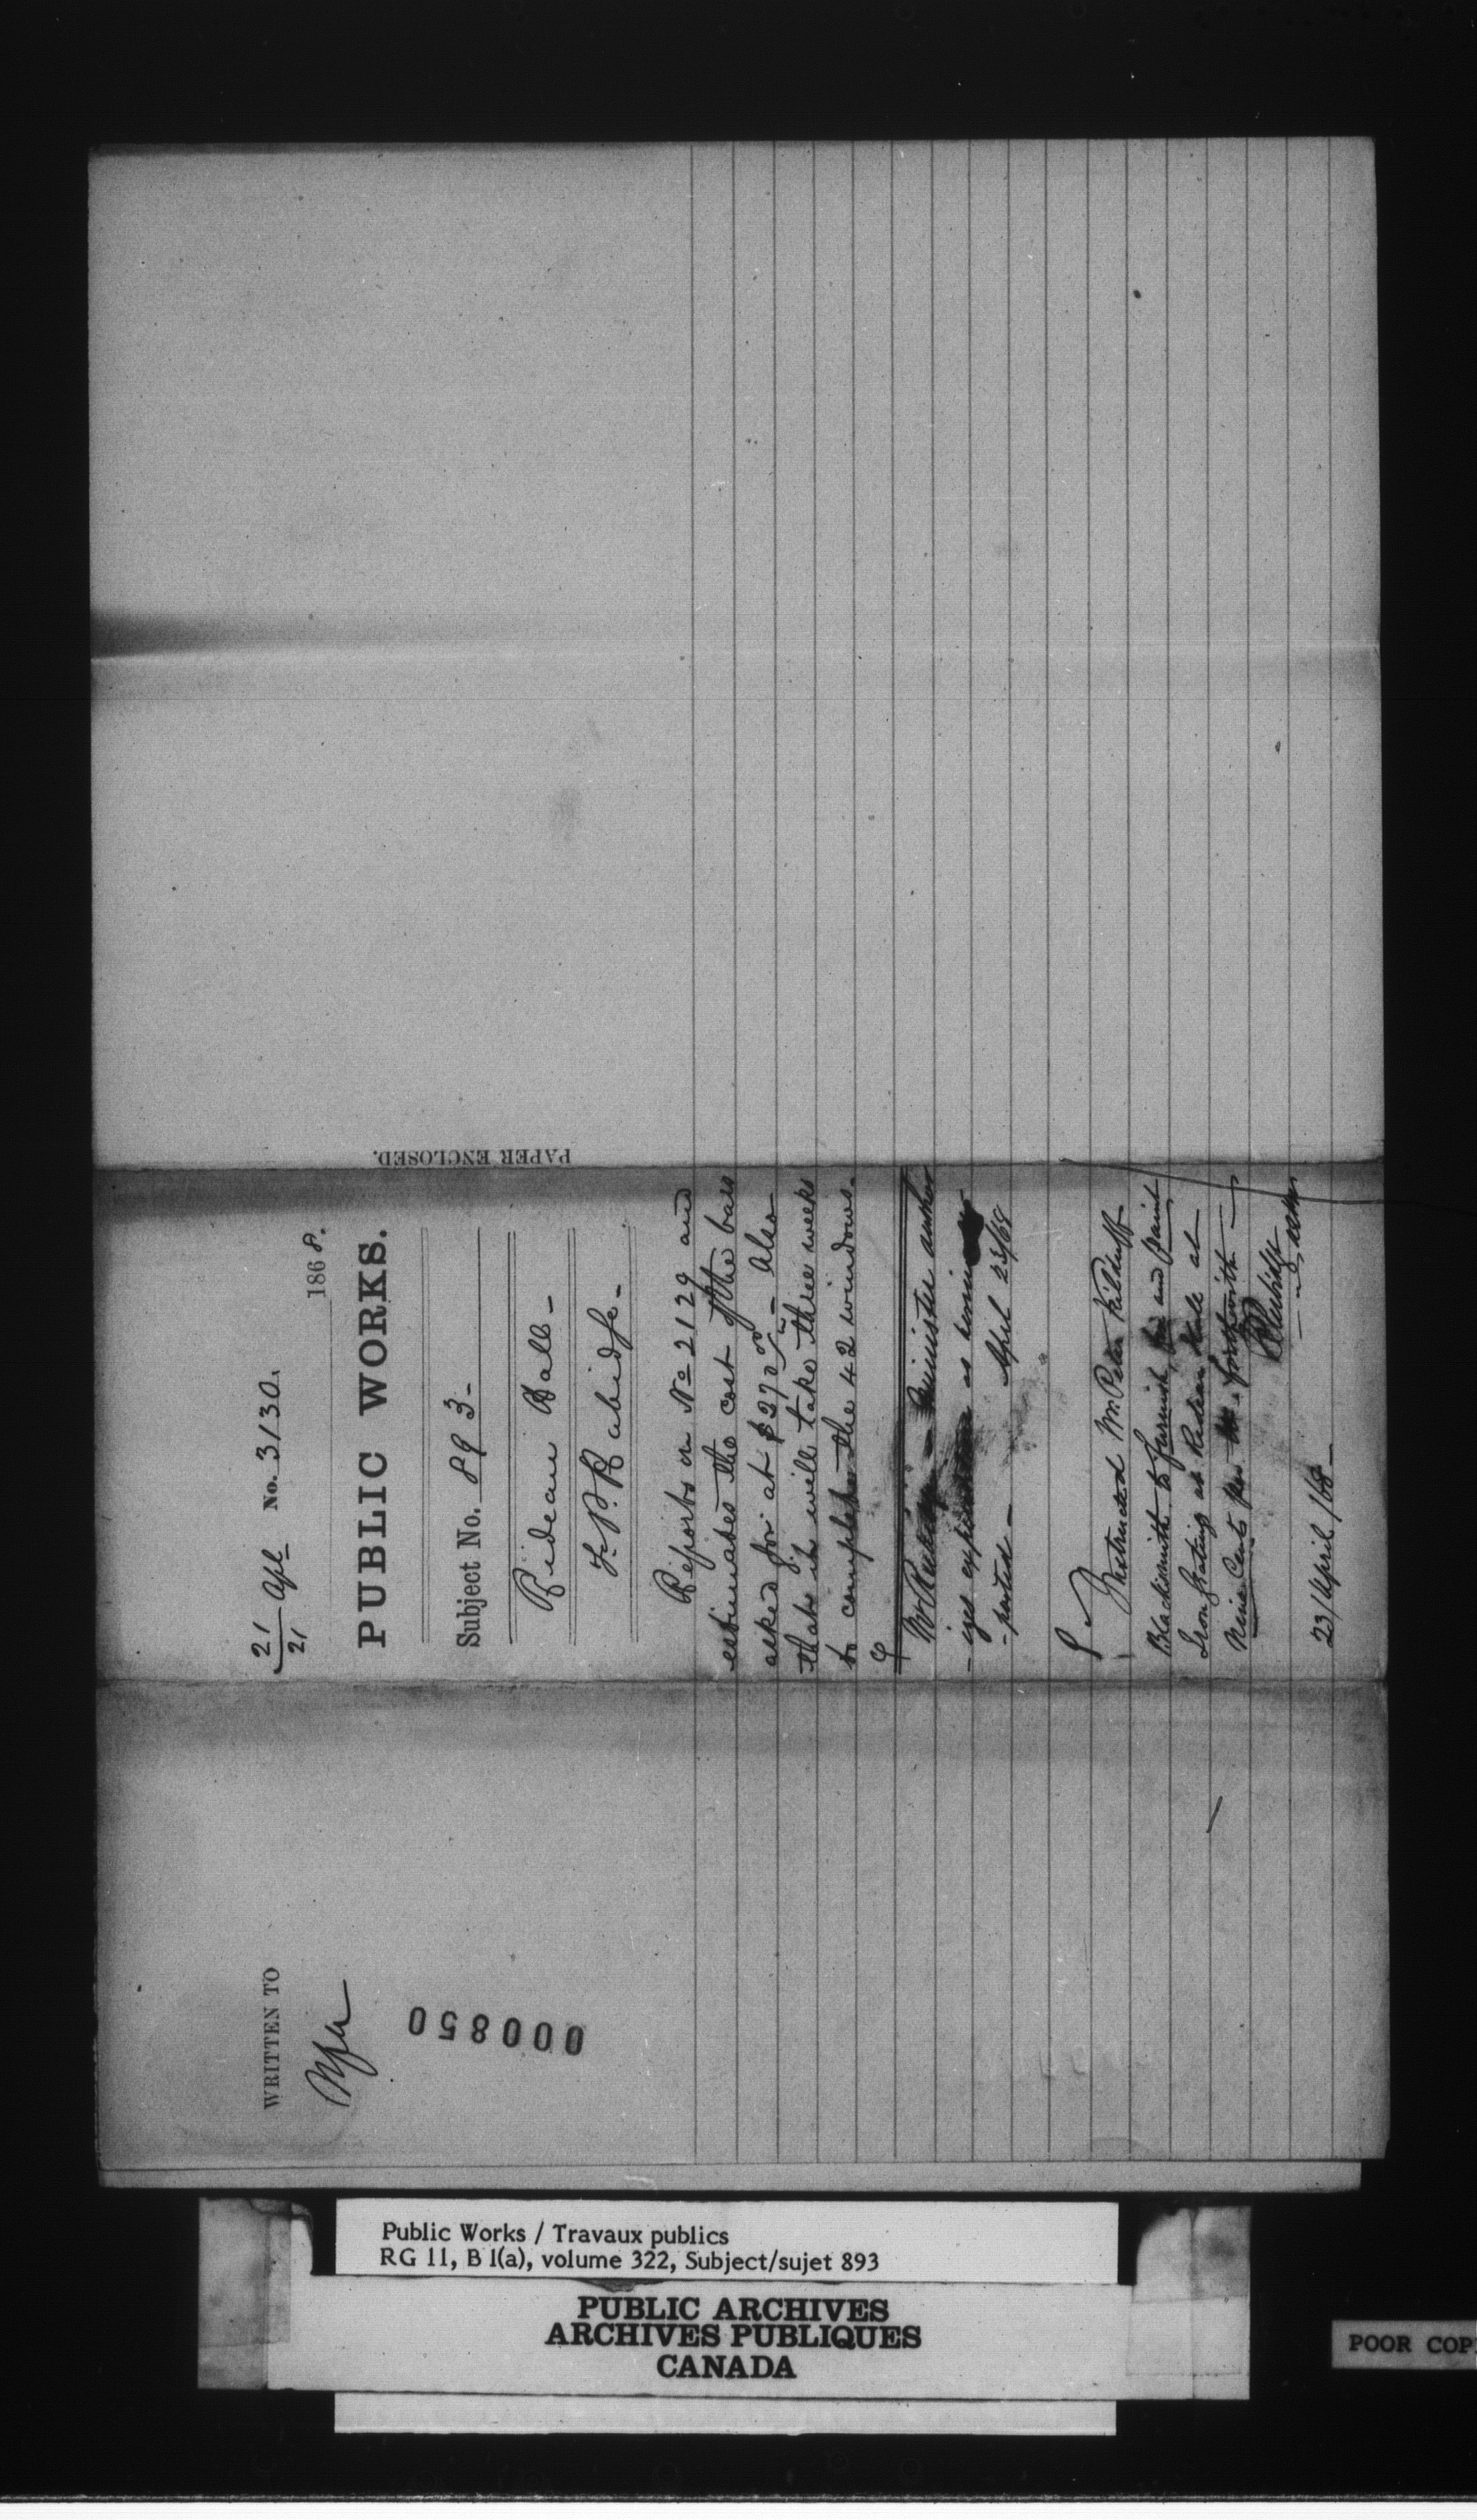 21 Apl No. 3130.
21
1868.
PUBLIC WORKS.
Subject No. 893-
Rideau Hall-
F. P. Rubidge-
Reports on No 2129 and
estimates the cost of the bars
asked for at $270 00 - Also
that it will take three weeks
to complete the 42 windows.
Mr Rubidge - Minister author
-izes expenditure as
-ported - April 23/68
Instructed Mr. Peter Kilduff
Blacksmith to furnish, fix and paint
Iron gratings at Rideau Hall at
Nine Cents per lb. forthwith -
FPRubidge
23/April/68-
PAPER ENCLOSED.
WRITTEN TO
000850
Public Works / Travaux publics
RG 11, B 1(a), volume 322, Subject/sujet 893
PUBLIC ARCHIVES
ARCHIVES PUBLIQUES
CANADA
POOR COP